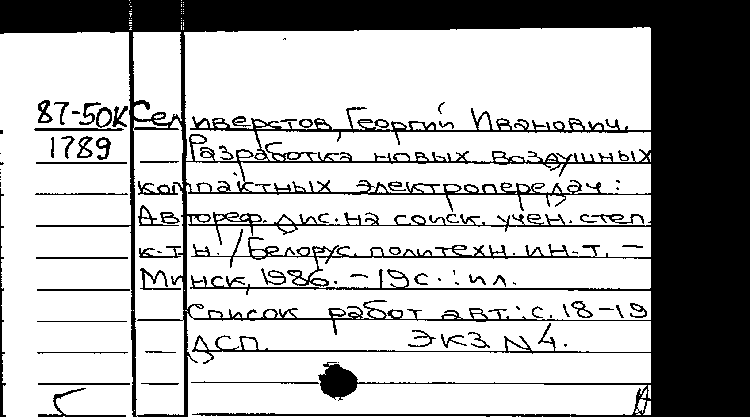 87-50К Селиверстов, Георгий Иванович.
1789 Разработка новых воздушных
компактных электропередач:
Автореф. дис. на соиск. учен. степ.
к.т.н. / Белорус. политехн. ин-т. –
Минск, 1986. – 19 с. : ил.
Список работ авт.: с. 18-19
ДСП. Экз. N 4.